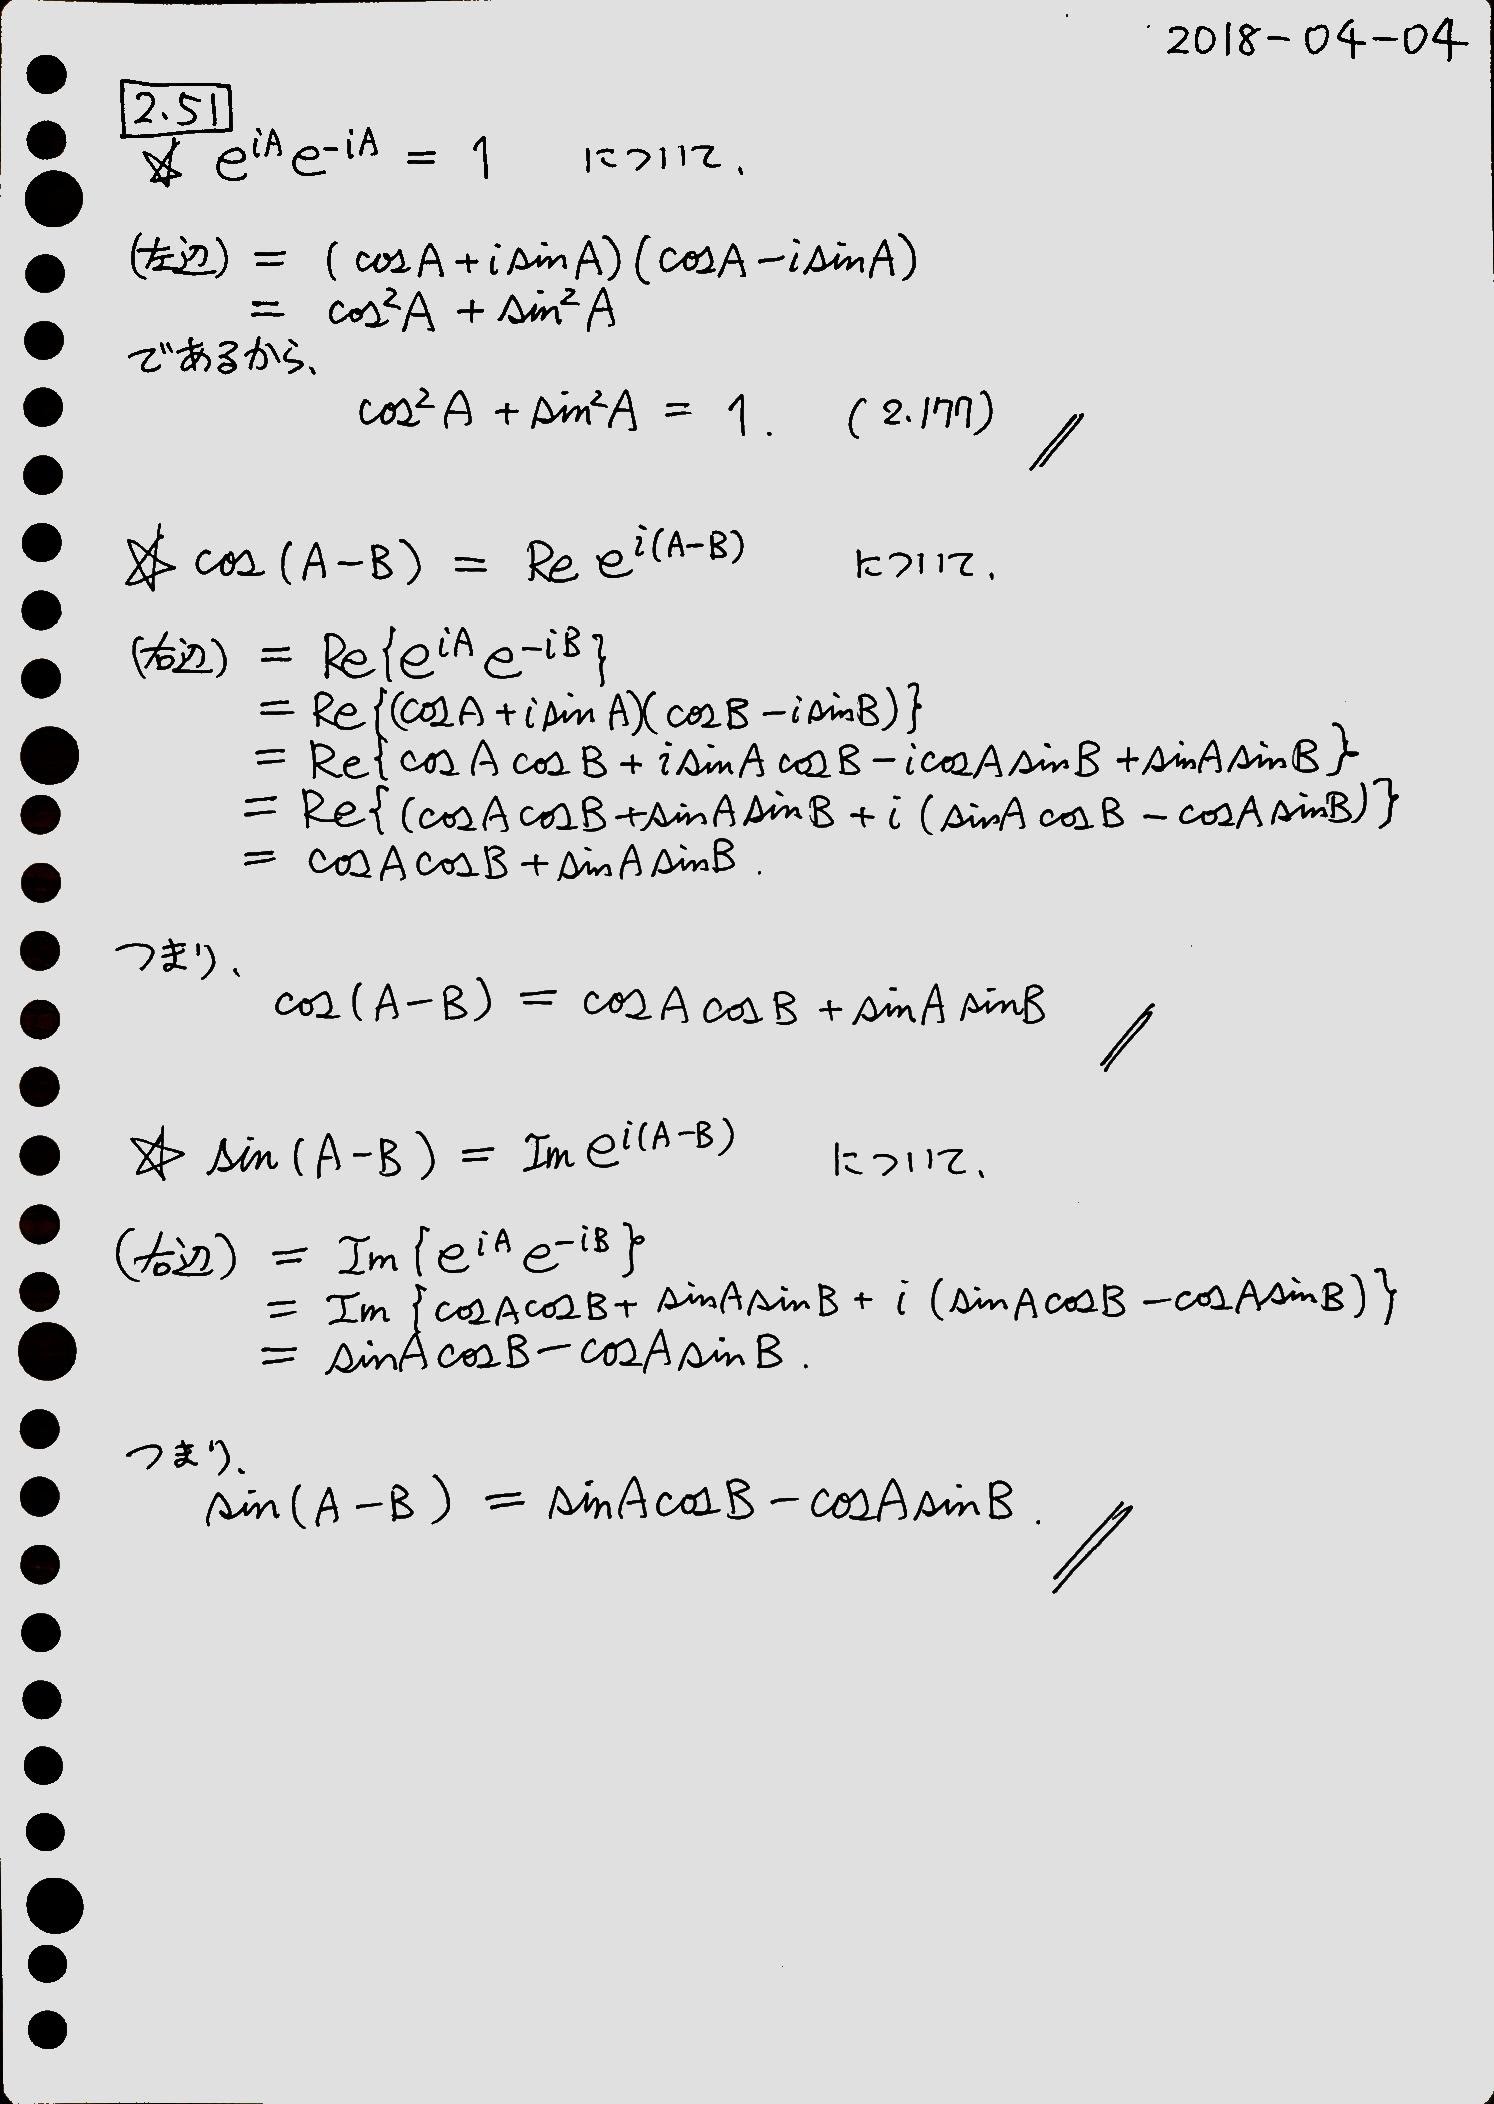 2018-04-04
2.51
☆ e^{iA} e^{-iA} = 1 について、
(左辺) = (cosA + i sinA)(cosA - i sinA)
= cos²A + sin²A
であるから、
cos²A + sin²A = 1. (2.177) //
☆ cos(A-B) = Re e^{i(A-B)} について、
(右辺) = Re{e^{iA} e^{-iB}}
= Re{(cosA + i sinA)(cosB - i sinB)}
= Re{cosA cosB + i sinA cosB - i cosA sinB + sinA sinB}
= Re{(cosA cosB + sinA sinB + i (sinA cosB - cosA sinB)}
= cosA cosB + sinA sinB.
つまり、
cos(A-B) = cosA cosB + sinA sinB //
☆ sin(A-B) = Im e^{i(A-B)} について、
(右辺) = Im{e^{iA} e^{-iB}}
= Im{cosA cosB + sinA sinB + i (sinA cosB - cosA sinB)}
= sinA cosB - cosA sinB.
つまり、
sin(A-B) = sinA cosB - cosA sinB. //